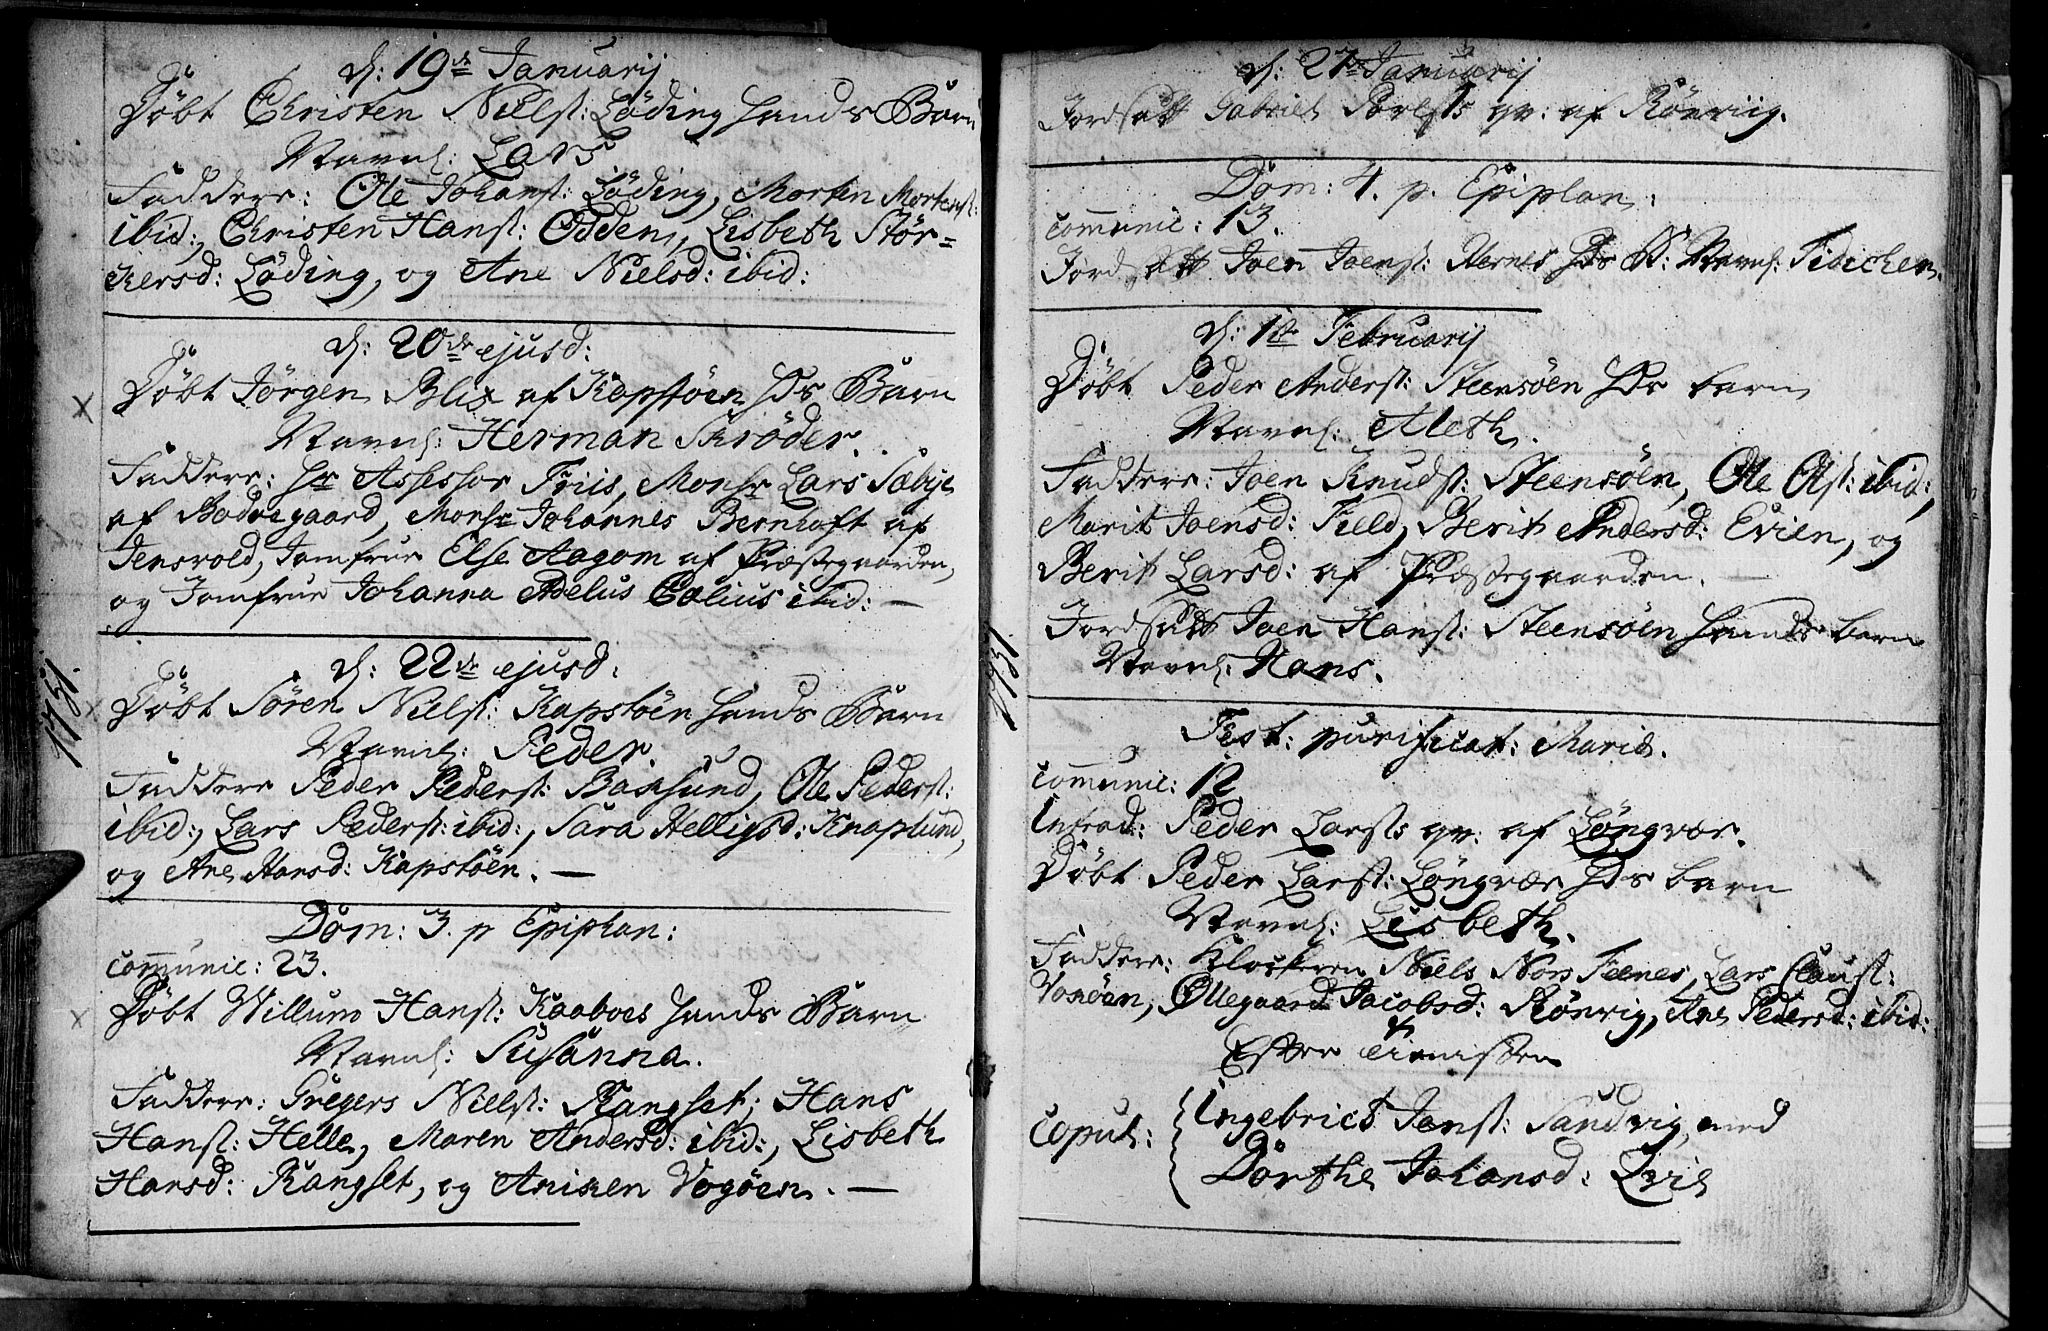 d: 19de Januarij
Döbt Christen Nielst: Löding hands Barn
Navnl: Lars
Faddere: Ole Johanst: Löding, Morten Mortenst:
ibid:, Christen Hanst: Odden, Lisbeth Stör=
kersd: Löding, og Ane Nielsd: ibid:
d: 20de ejusd:
Döbt Jörgen Blix af Kapstöen Hs Barn
Navnl: Herman Skröder.
Faddere: Hr Assessor Friis, Monsr Lars Sæbye
af Bodøegaard, Monsr Johannes Bernhoft af
Jensvold, Jomfrue Else Aagom af Præstegaarden,
og Jomfrue Johanna Adelus Coelius ibid: —
1751.
d: 22de ejusd:
Döbt Sören Nielst: Kapstöen hands Barn
Navnl: Peder.
Faddere Peder Pederst: Baxsund, Ole Pederst:
ibid:, Lars Pederst: ibid:, Sara Helligsd: Knaplund,
og Ane Hansd: Kapstöen. —
Dom: 3. p Epiphan:
communic: 23.
Döbt Willum Hanst: Kaaboes hands Barn
Navnl: Susanna.
Faddere: Gregers Nielst: Rangset, Hans
Hanst: Helle, Maren Andersd: ibid:, Lisbeth
Hansd: Rangset, og Aniken Vogöen. —
d: 27de Januarij
Jordsatt Gabriel qv: af Rönviig.
Dom: 4. p. Epiphan:
communic: 13.
Jordsatt Joen Joenst: Hernes Hs B: Navnl: Tidichen.
d: 1ste Februarij
Döbt Peder Anderst: Steensöen Hs barn
Navnl: Aleth.
Faddere: Joen Knudst: Steensöen, Ole Olst: ibid:,
Marit Joensd: Field, Berit Andersd: Evien, og
Berit Larsd: af Præstegaarden. —
Jordsatt Joen Hanst: Steensöen hands barn
Navnl: Hans.
1751.
Fest: purificat: Mariæ.
communic: 12
Introd: Peder Larsts qv: af Löngvær.
Döbt Peder Larst: Löngvær Hs barn
Navnl: Lisbeth.
Faddere: Klockeren Niels Nors Feenes, Lars Claust:
Voxöen, Ollegaard Jacobsd: Rönvig, Ane Pedersd: ibid:
Efter Tienisten
Copul: Ingebrict Jenst: Sandvig, med
Dörthe Johansd: Evie